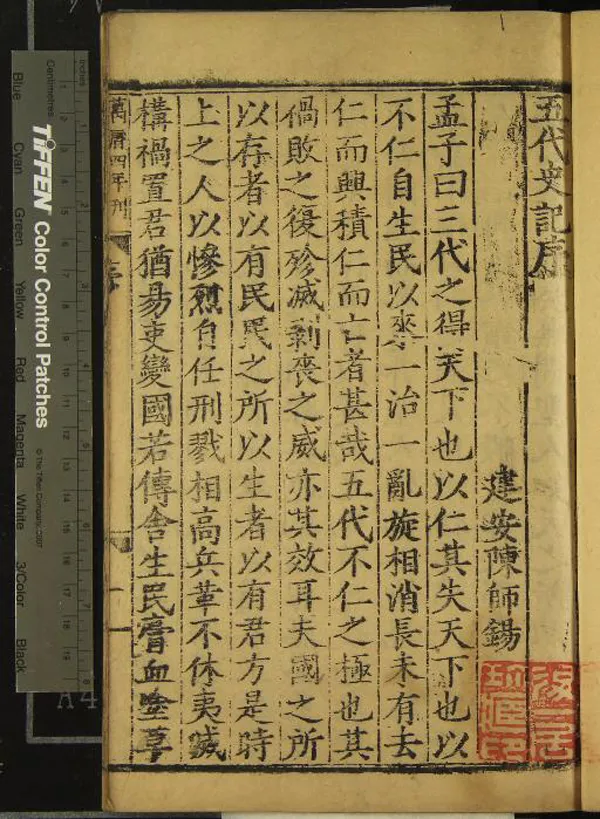 五代史記序
建安陳師錫
孟子曰三代之得天下也以仁其失天下也以
不仁自生民以來一治一亂旋相消長未有去
仁而興積仁而亡者甚哉五代不仁之極也其
禍敗之復殄滅剥喪之威亦其效耳夫國之所
以存者以有民民之所以生者以有君方是時
上之人以慘烈自任刑戮相高兵革不休夷滅
構禍置君猶易吏變國若傳舍生民膏血塗草
萬曆四年刊
序
一
inches
Centimetres
TIFFEN Color Control Patches
© The Tiffen Company, 2007
Blue
Cyan
Green
Yellow
Red
Magenta
White
3/Color
Black
A4